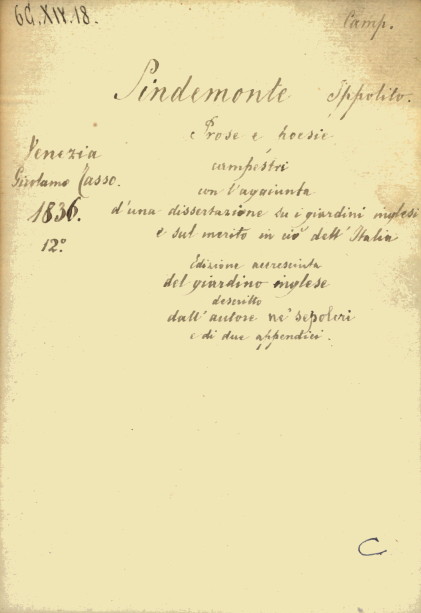 6G.XIV.18.
Camp.
Pindemonte Ippolito.
Prose e poesie
campestri
con l'aggiunta
d'una dissertazione su i giardini inglesi
e sul merito in ciò dell'Italia
Venezia
Girolamo Tasso.
1836.
12º
Edizione accresciuta
del giardino inglese
descritto
dall'autore ne' sepolcri
e di due appendici.
C